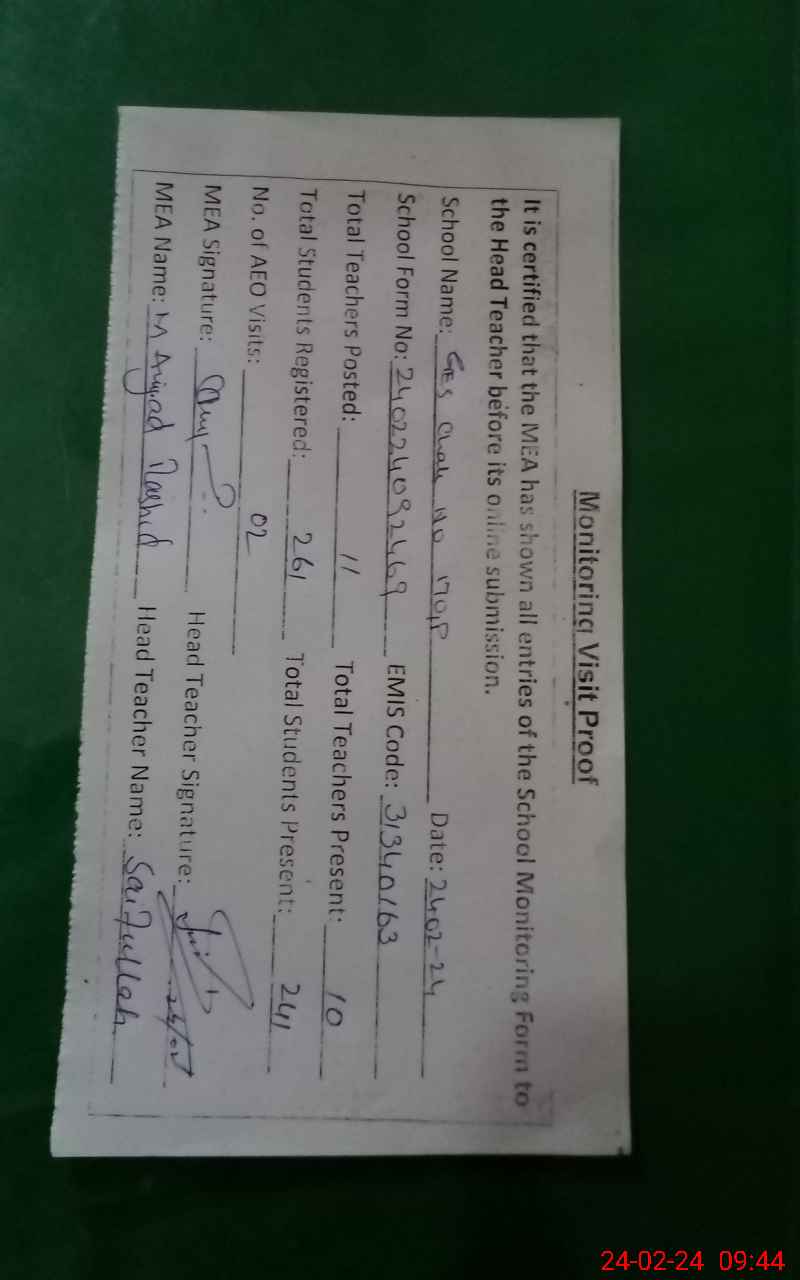 Monitoring Visit Proof
It is certified that the MEA has shown all entries of the School Monitoring Form to
the Head Teacher before its online submission.
School Name: GES Chak No 170,P Date: 2402-24
School Form No: 240224092469 EMIS Code: 31340163
Total Teachers Posted: 11 Total Teachers Present: 10
Total Students Registered: 261 Total Students Present: 241
No. of AEO Visits: 02
MEA Signature: Head Teacher Signature:
MEA Name: M Amjad Rashid Head Teacher Name: Saifullah
24-02-24 09:44